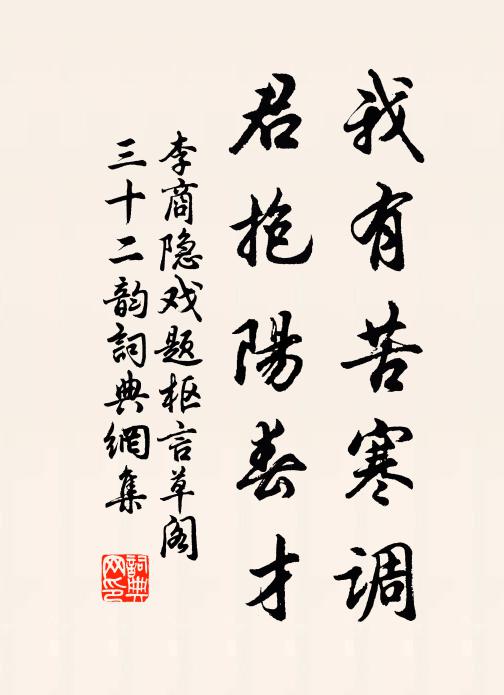 我有苦寒调
君抱陽春才
李商隐戏题枢言草阁
三十二韵詞典網集
詞典
网印